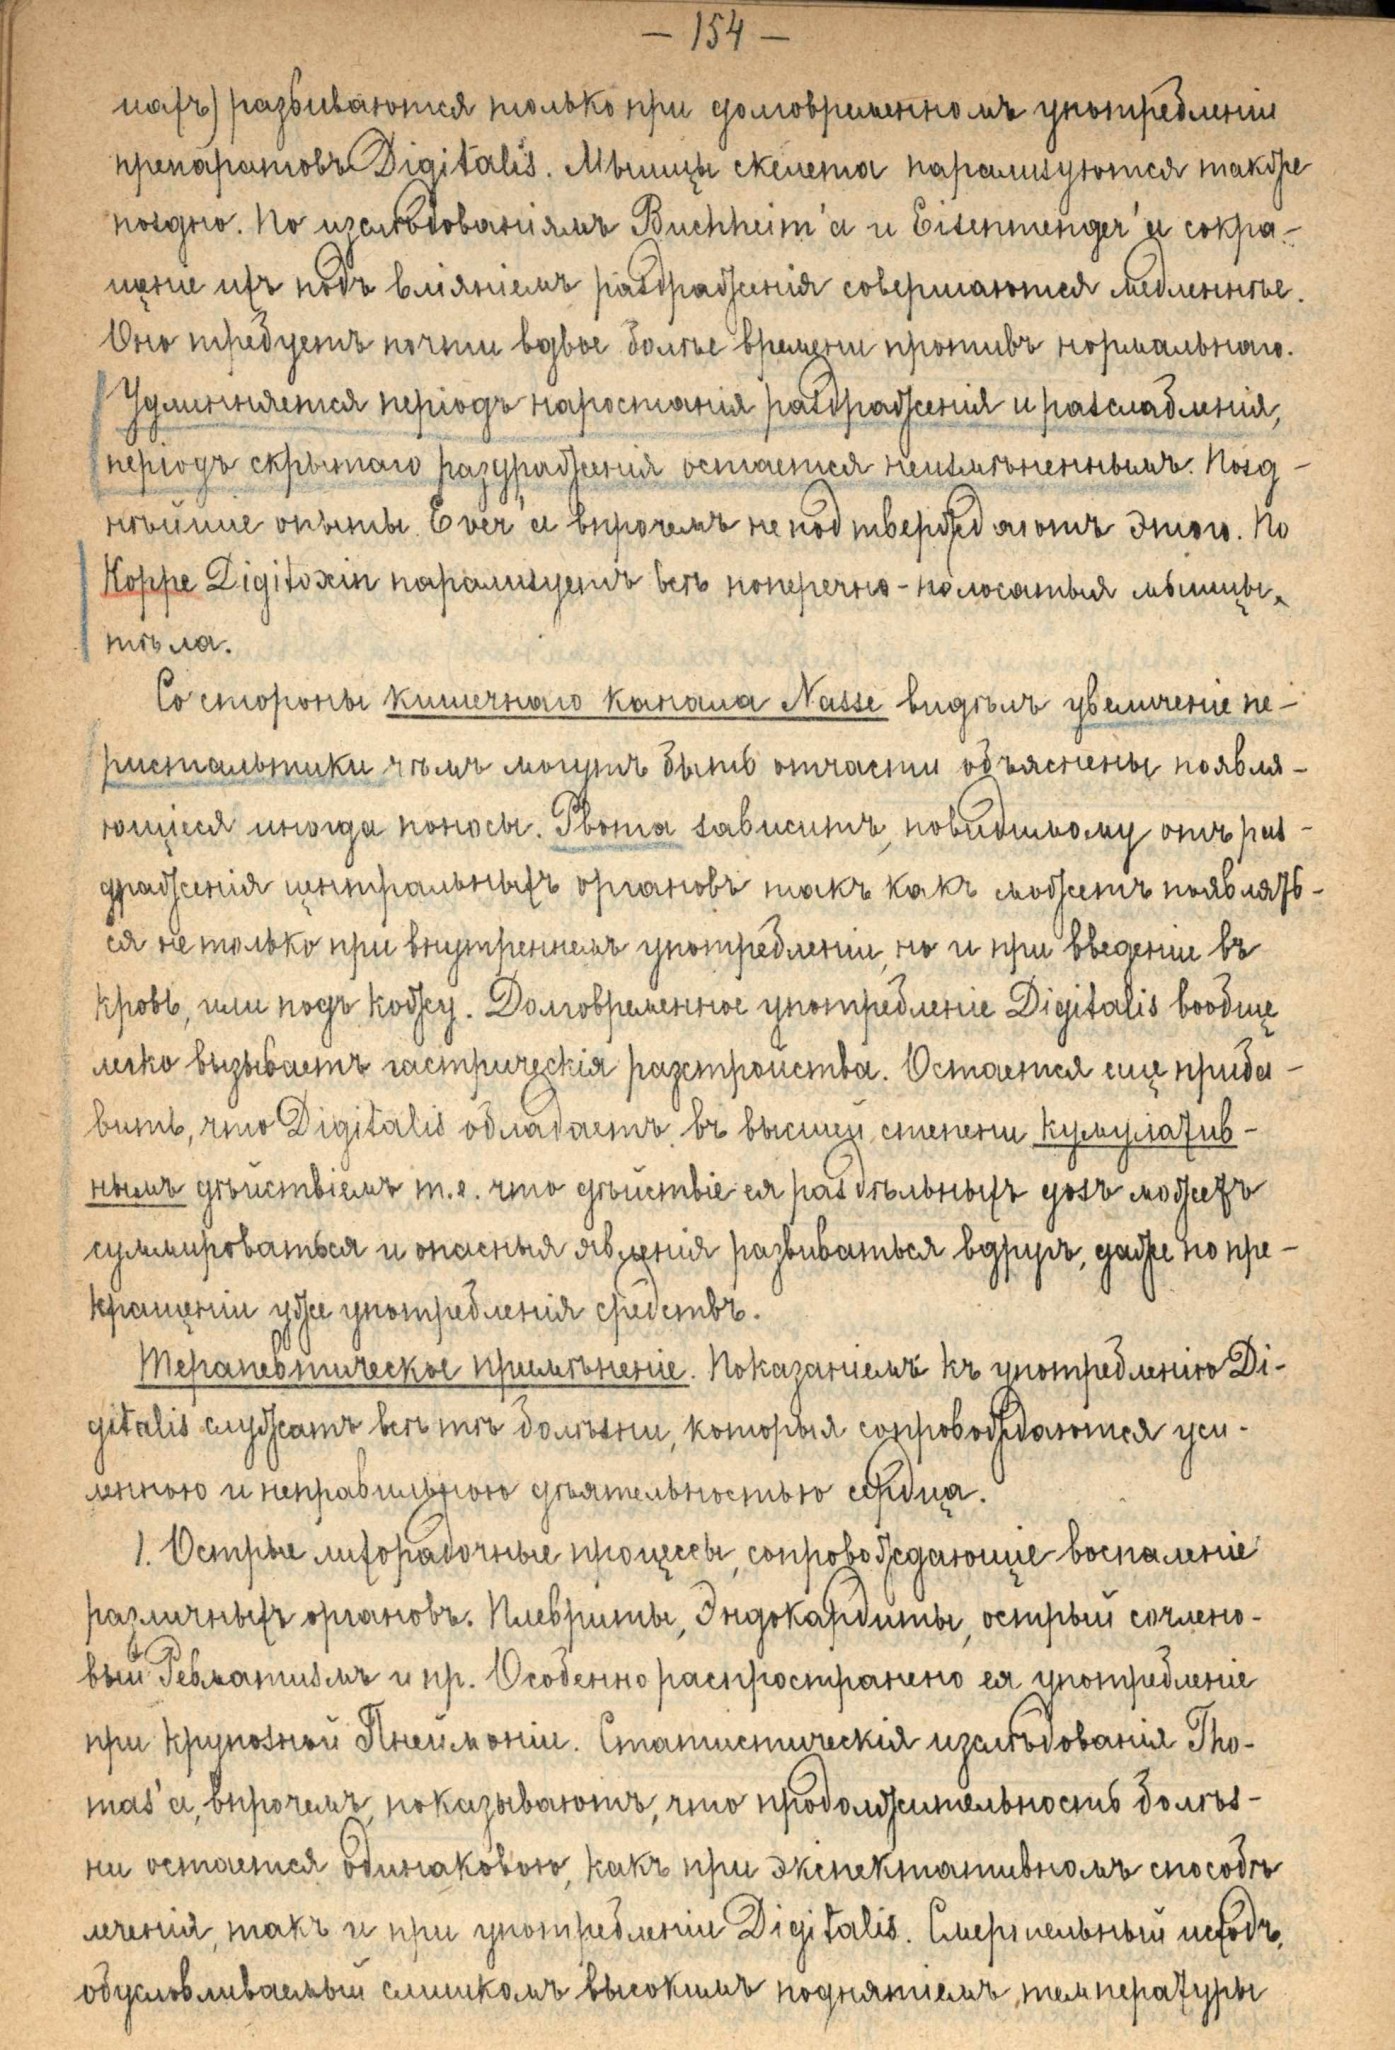 — 154 —
цахъ) развиваются только при долговременномъ употребленіи
препаратовъ Digitalis. Мышцы скелета парализуются также
поздно. По изслѣдованіямъ Buchheim'a и Eisenmenger'a сокра-
щеніе ихъ подъ вліяніемъ раздраженія совершаются медленнѣе.
Оно требуетъ почти вдвое болѣе времени противъ нормальнаго.
Удлинняется періодъ наростанія раздраженія и разслабленія,
періодъ скрытаго раздраженія остается неизмѣненнымъ. Позд-
нѣйшіе опыты Ever'a впрочемъ не подтверждаютъ этого. По
Koppe Digitoxin парализуетъ всѣ поперечно-полосатыя мышцы
тѣла.
Со стороны кишечнаго канала Nasse видѣлъ увеличеніе пе-
ристальтики чѣмъ могутъ быть отчасти объяснены появля-
ющіеся иногда поносы. Рвота зависитъ, повидимому отъ раз-
драженія центральныхъ органовъ такъ какъ можетъ появлять-
ся не только при внутреннемъ употребленіи, но и при введеніе въ
кровь, или подъ кожу. Долговременное употребленіе Digitalis вообще
легко вызываетъ гастрическія разстройства. Остается еще приба-
вить, что Digitalis обладаетъ въ высшей степени кумулатив-
нымъ дѣйствіемъ т.е. что дѣйствіе ея раздѣльныхъ дозъ можетъ
суммироваться и опасныя явленія развиваться вдругъ, даже по пре-
кращеніи уже употребленія средствъ.
Терапевтическое примѣненіе. Показаніемъ къ употребленію Di-
gitalis служатъ всѣ тѣ болѣзни, которыя сопровождаются уси-
ленною и неправильною дѣятельностью сердца.
1. Острые лихорадочные процессы, сопровождающіе воспаленіе
различныхъ органовъ. Плевриты, Эндокардиты, острый сочлено-
вый Ревматизмъ и пр. Особенно распространено ея употребленіе
при крупозной Пнеймоніи. Статистическія изслѣдованія Tho-
mas'a, впрочемъ, показываютъ, что продолжительность болѣз-
ни остается одинаковою, какъ при экспектативномъ способѣ
леченія, такъ и при употребленіи Digitalis. Смертельный исходъ,
обусловливаемый слишкомъ высокимъ поднятіемъ температуры